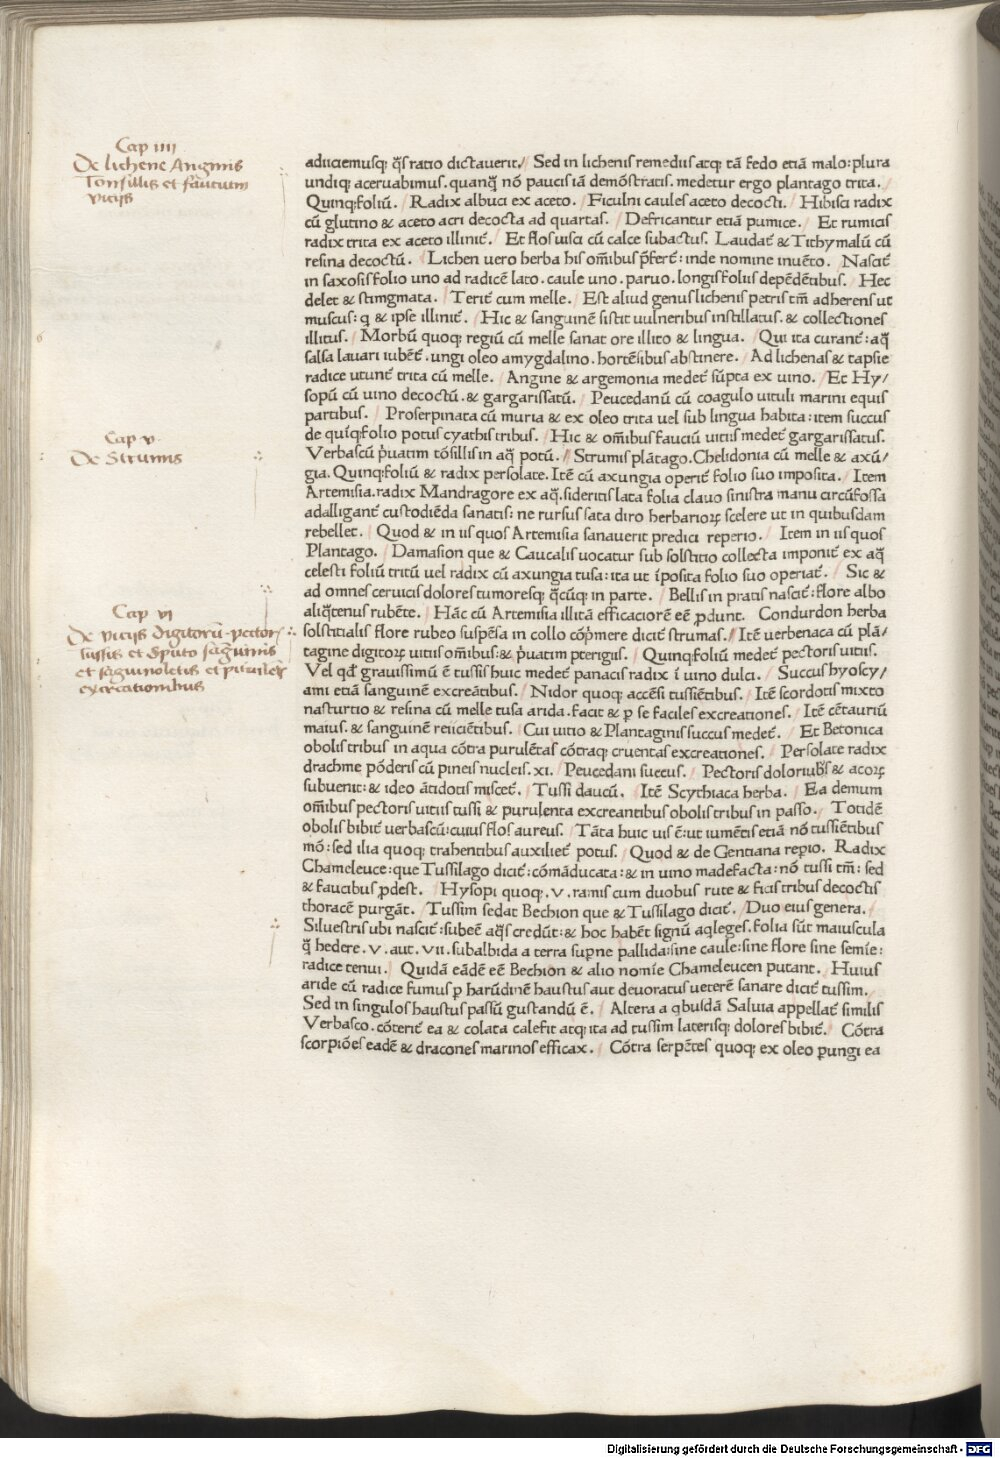 Cap iiii
De lichene Anginis
Tonsillis et faucium
vicijs
adiiciemusq; q̃s ratio dictauerit. Sed in lichenis remediis atq; tā fedo etiā malo: plura
undiq; aceruabimus. quanq̄ nō paucis iā demōstratis. medetur ergo plantago trita.
Quinq;foliū. Radix albuci ex aceto. Ficulni caules aceto decocti. Hibisci radix
cū glutino & aceto acri decocta ad quartas. Defricantur etiā pumice. Et rumicis
radix trita ex aceto illinit̄. Et flos uisci cū calce subactus. Laudat̄ & Tithymalū cū
resina decoctū. Lichen uero herba his om̄ibus p̄fert̄: inde nomine inuēto. Nascit̄
in saxosis folio uno ad radicē lato. caule uno. paruo. longis foliis depēdētibus. Hec
delet & stingmata. Terit̄ cum melle. Est aliud genus lichenis petris tm̄ adherens ut
muscus: q & ipse illinit̄. Hic & sanguinē sistit uulneribus instillatus. & collectiones
illitus. Morbū quoq; regiū cū melle sanat ore illito & lingua. Qui ita curant̄: aq̄
salsa lauari iubēt̄. ungi oleo amygdalino. hortēsibus abstinere. Ad lichenas & tapsie
radice utunt̄ trita cū melle. Angine & argemonia medet̄ sūpta ex uino. Et Hy/
sopū cū uino decoctū. & gargarissatū. Peucedanū cū coagulo uituli marini equis
partibus. Proserpinata cū muria & ex oleo trita uel sub lingua habita: item succus
de quīq;folio potus cyathis tribus. Hic & om̄ibus fauciū uitiis medet̄ gargarissatus.
Cap v.
De Strumis
Verbascū p̄uatim tōsillis in aq̄ potū. Strumis plātago. Chelidonia cū melle & axū/
gia. Quinq;foliū & radix persolate. Itē cū axungia operit̄ folio suo imposita. Item
Artemisia. radix Mandragore ex aq̄. sideritis lata folia clauo sinistra manu circūfossa
adalligant̄ custodiēda sanatis: ne rursus sata diro herbarioꝝ scelere ut in quibusdam
rebellet. Quod & in iis quos Artemisia sanauerit predici reperio. Item in iis quos
Plantago. Damasion que & Caucalis uocatur sub solstitio collecta imponit̄ ex aq̄
celesti foliū tritū uel radix cū axungia tusa: ita ut īposita folio suo operiat̄. Sic &
ad omnes ceruicis dolores tumoresq; q̄cūq; in parte. Bellis in pratis nascit̄: flore albo
aliq̄tenus rubēte. Hāc cū Artemisia illitā efficaciorē eē ꝓdunt. Condurdon herba
Cap vi
De vicijs digitorū pectorꝭ
tussis et sputo sāguinis
et sāguinoletis et purulētꝭ
excreationibus
solstitialis flore rubeo suspēsa in collo cōp̄mere dicit̄ strumas. Itē uerbenaca cū plā/
tagine digitoꝝ uitiis om̄ibus: & p̄uatim pterigiis. Quinq;foliū medet̄ pectoris uitiis.
Vel qd̄ grauissimū ē tussis huic medet̄ panacis radix ī uino dulci. Succus hyoscy/
ami etiā sanguinē excreātibus. Nidor quoq; accēsi tussiētibus. Itē scordotis mixto
nasturtio & resina cū melle tusa arida. facit & p se faciles excreationes. Itē cētauriū
maius. & sanguinē reiiciētibus. Cui uitio & Plantaginis succus medet̄. Et Betonica
obolis tribus in aqua cōtra purulētas cōtraq; cruentas excreationes. Persolate radix
drachme pōderis cū pineis nucleis. xi. Peucedani succus. Pectoris doloriub⁹ & acoꝝ
subuenit: & ideo ātidotis miscet̄. Tussi daucū. Itē Scythiaca herba. Ea demum
om̄ibus pectoris uitiis tussi & purulenta excreantibus obolis tribus in passo. Totidē
obolis bibit̄ uerbascū: cuius flos aureus. Tāta huic uis ē: ut iumētis etiā nō tussiētibus
mō: sed ilia quoq; trahentibus auxiliet̄ potus. Quod & de Gentiana repio. Radix
Chameleuce: que Tussilago dicit̄: cōmāducata: & in uino madefacta: nō tussi tm̄: sed
& faucibus ꝓdest. Hysopi quoq;. v. ramis cum duobus rute & ficis tribus decoctis
thoracē purgāt. Tussim sedat Bechion que & Tussilago dicit̄. Duo eius genera.
Siluestris ubi nascit̄: subeē aq̄s credūt: & hoc habēt signū aqleges. folia sūt maiuscula
q̄ hedere. v. aut. vii. subalbida a terra supne pallida: sine caule: sine flore sine semīe:
radice tenui. Quidā eādē eē Bechion & alio nomīe Chameleucen putant. Huius
aride cū radice fumus p harūdinē haustus aut deuoratus ueterē sanare dicit̄ tussim.
Sed in singulos haustus passū gustandū ē. Altera a qbusdā Saluia appellat̄ similis
Verbasco. cōterit̄ ea & colata calefit atq; ita ad tussim laterisq; dolores bibit̄. Cōtra
scorpiōes eadē & dracones marinos efficax. Cōtra serpētes quoq; ex oleo pungi ea
Digitalisierung gefördert durch die Deutsche Forschungsgemeinschaft - DFG